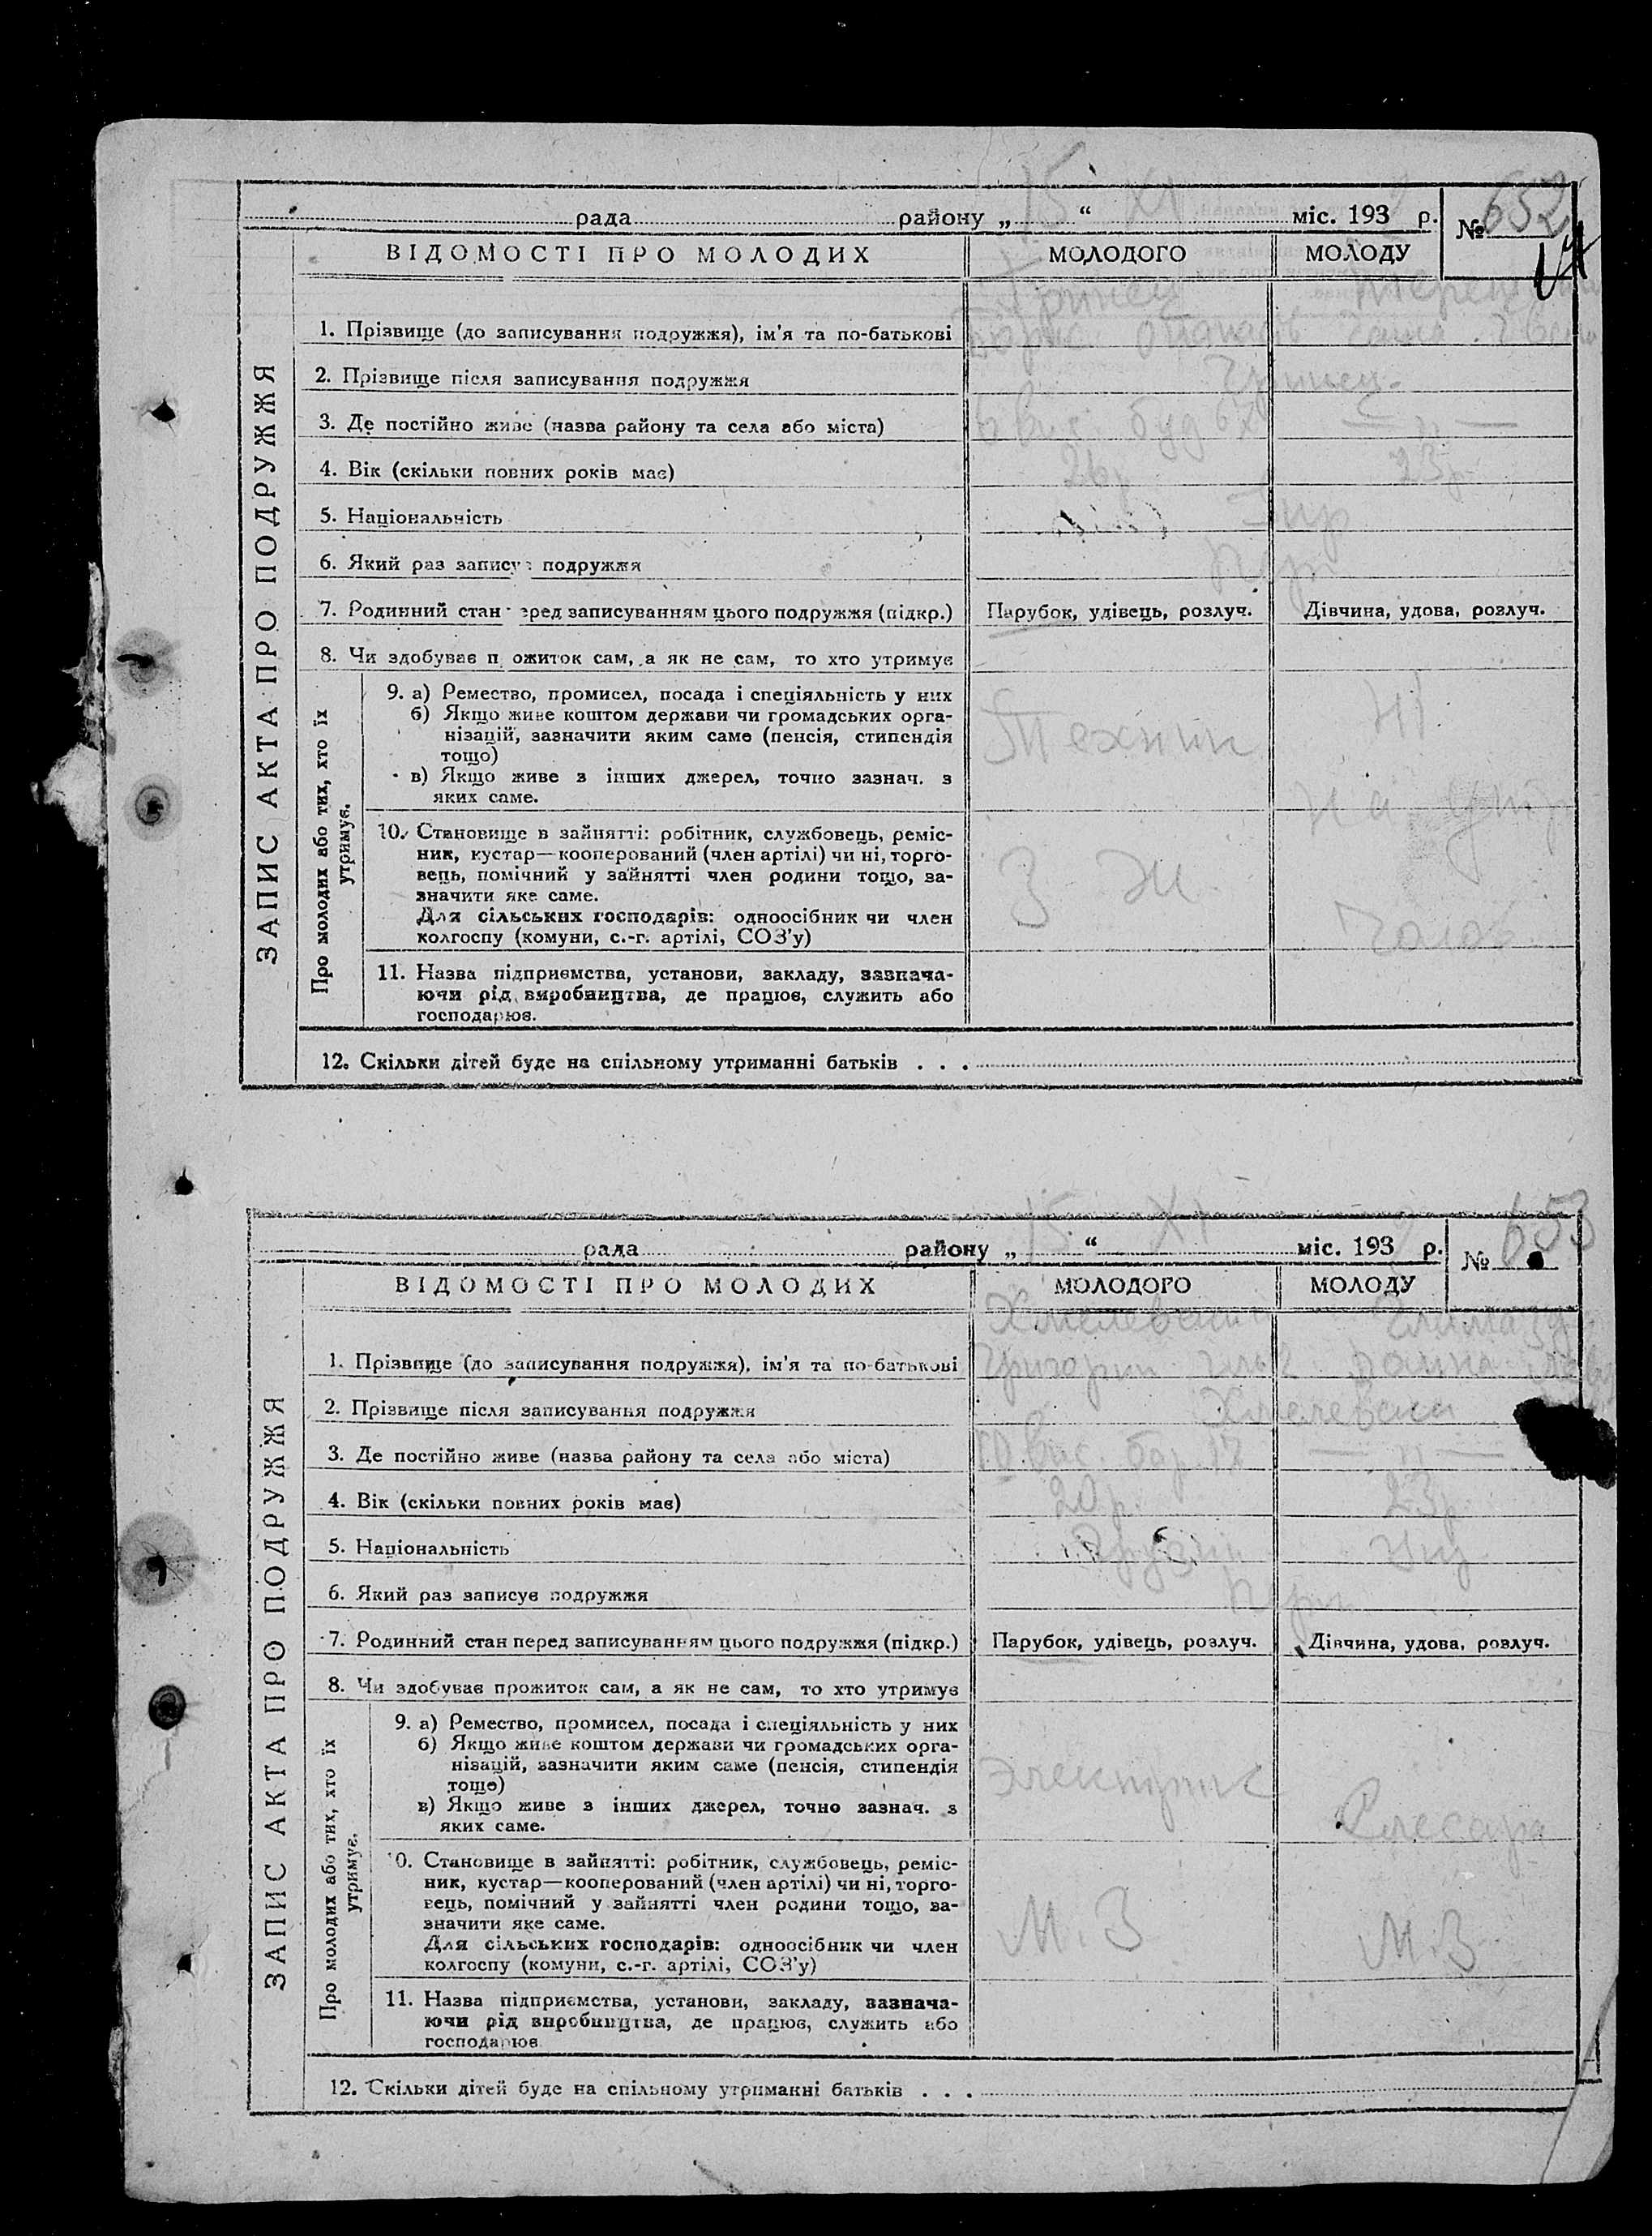 рада району „ 15 “ XI міс. 193 р. № 652
ВІДОМОСТІ ПРО МОЛОДИХ МОЛОДОГО МОЛОДУ
ЗАПИС АКТА ПРО ПОДРУЖЖЯ
Гринец
1. Прізвище (до записування подружжя), ім'я та по-батькові
2. Прізвище після записування подружжя Гринец
3. Де постійно живе (назва району та села або міста) буд — " —
4. Вік (скільки повних років має) 26р 23р
5. Національність Укр
6. Який раз записує подружжя Пер
7. Родинний стан перед записуванням цього подружжя (підкр.) Парубок, удівець, розлуч. Дівчина, удова, розлуч.
8. Чи здобуває прожиток сам, а як не сам, то хто утримує
Про молодих або тих, хто їх утримує.
9. а) Ремество, промисел, посада і спеціяльність у них
б) Якщо живе коштом держави чи громадських орга-
нізацій, зазначити яким саме (пенсія, стипендія
тощо)
в) Якщо живе з інших джерел, точно зазнач. з
яких саме.
Техник
на утр
10. Становище в зайнятті: робітник, службовець, реміс-
ник, кустар—кооперований (член артілі) чи ні, торго-
вець, помічний у зайнятті член родини тощо, за-
значити яке саме.
Для сільських господарів: одноосібник чи член
колгоспу (комуни, с.-г. артілі, СОЗ'у)
Чолов
11. Назва підприємства, установи, закладу, зазнача-
ючи рід виробництва, де працює, служить або
господарює.
12. Скільки дітей буде на спільному утриманні батьків . . .
рада району „ 15 “ XI міс. 193 р. № 653
ВІДОМОСТІ ПРО МОЛОДИХ МОЛОДОГО МОЛОДУ
ЗАПИС АКТА ПРО ПОДРУЖЖЯ
Хмелевский
1. Прізвище (до записування подружжя), ім'я та по-батькові Григорий
2. Прізвище після записування подружжя Хмелевский
3. Де постійно живе (назва району та села або міста) бар. 17 — " —
4. Вік (скільки повних років має) 20 р. 23р.
5. Національність Укр
6. Який раз записує подружжя Пер
7. Родинний стан перед записуванням цього подружжя (підкр.) Парубок, удівець, розлуч. Дівчина, удова, розлуч.
8. Чи здобуває прожиток сам, а як не сам, то хто утримує
Про молодих або тих, хто їх утримує.
9. а) Ремество, промисел, посада і спеціяльність у них
б) Якщо живе коштом держави чи громадських орга-
нізацій, зазначити яким саме (пенсія, стипендія
тоще)
в) Якщо живе з інших джерел, точно зазнач. з
яких саме.
Электрик Слесарь
10. Становище в зайнятті: робітник, службовець, реміс-
ник, кустар—кооперований (член артілі) чи ні, торго-
вець, помічний у зайнятті член родини тощо, за-
значити яке саме.
Для сільських господарів: одноосібник чи член
колгоспу (комуни, с.-г. артілі, СОЗ'у)
М. З М. З
11. Назва підприємства, установи, закладу, зазнача-
ючи рід виробництва, де працює, служить або
господарює
12. Скільки дітей буде на спільному утриманні батьків . . .